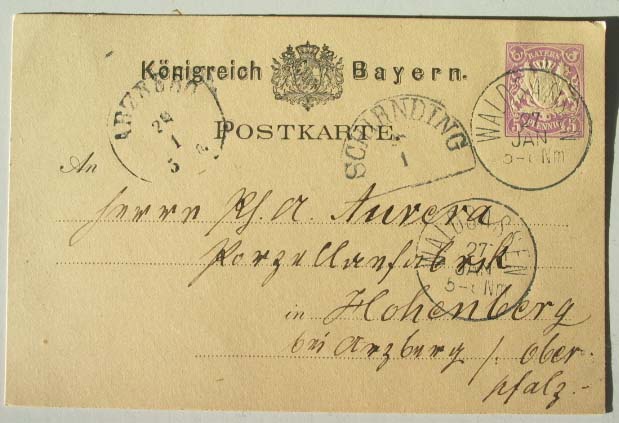 Königreich Bayern.
POSTKARTE.
5 BAYERN 5
5 PFENNIG 5
WALDSASSEN
27
JAN
5-6 Nm
ARZBERG
29
1
5
SCHIRNDING
1
An
Herrn Ph. A. Auvera
Porzellanfabrik
WALDSASSEN
27
JAN
5-6 Nm
in Hohenberg
bei Arzberg /: Ober-
pfalz.-